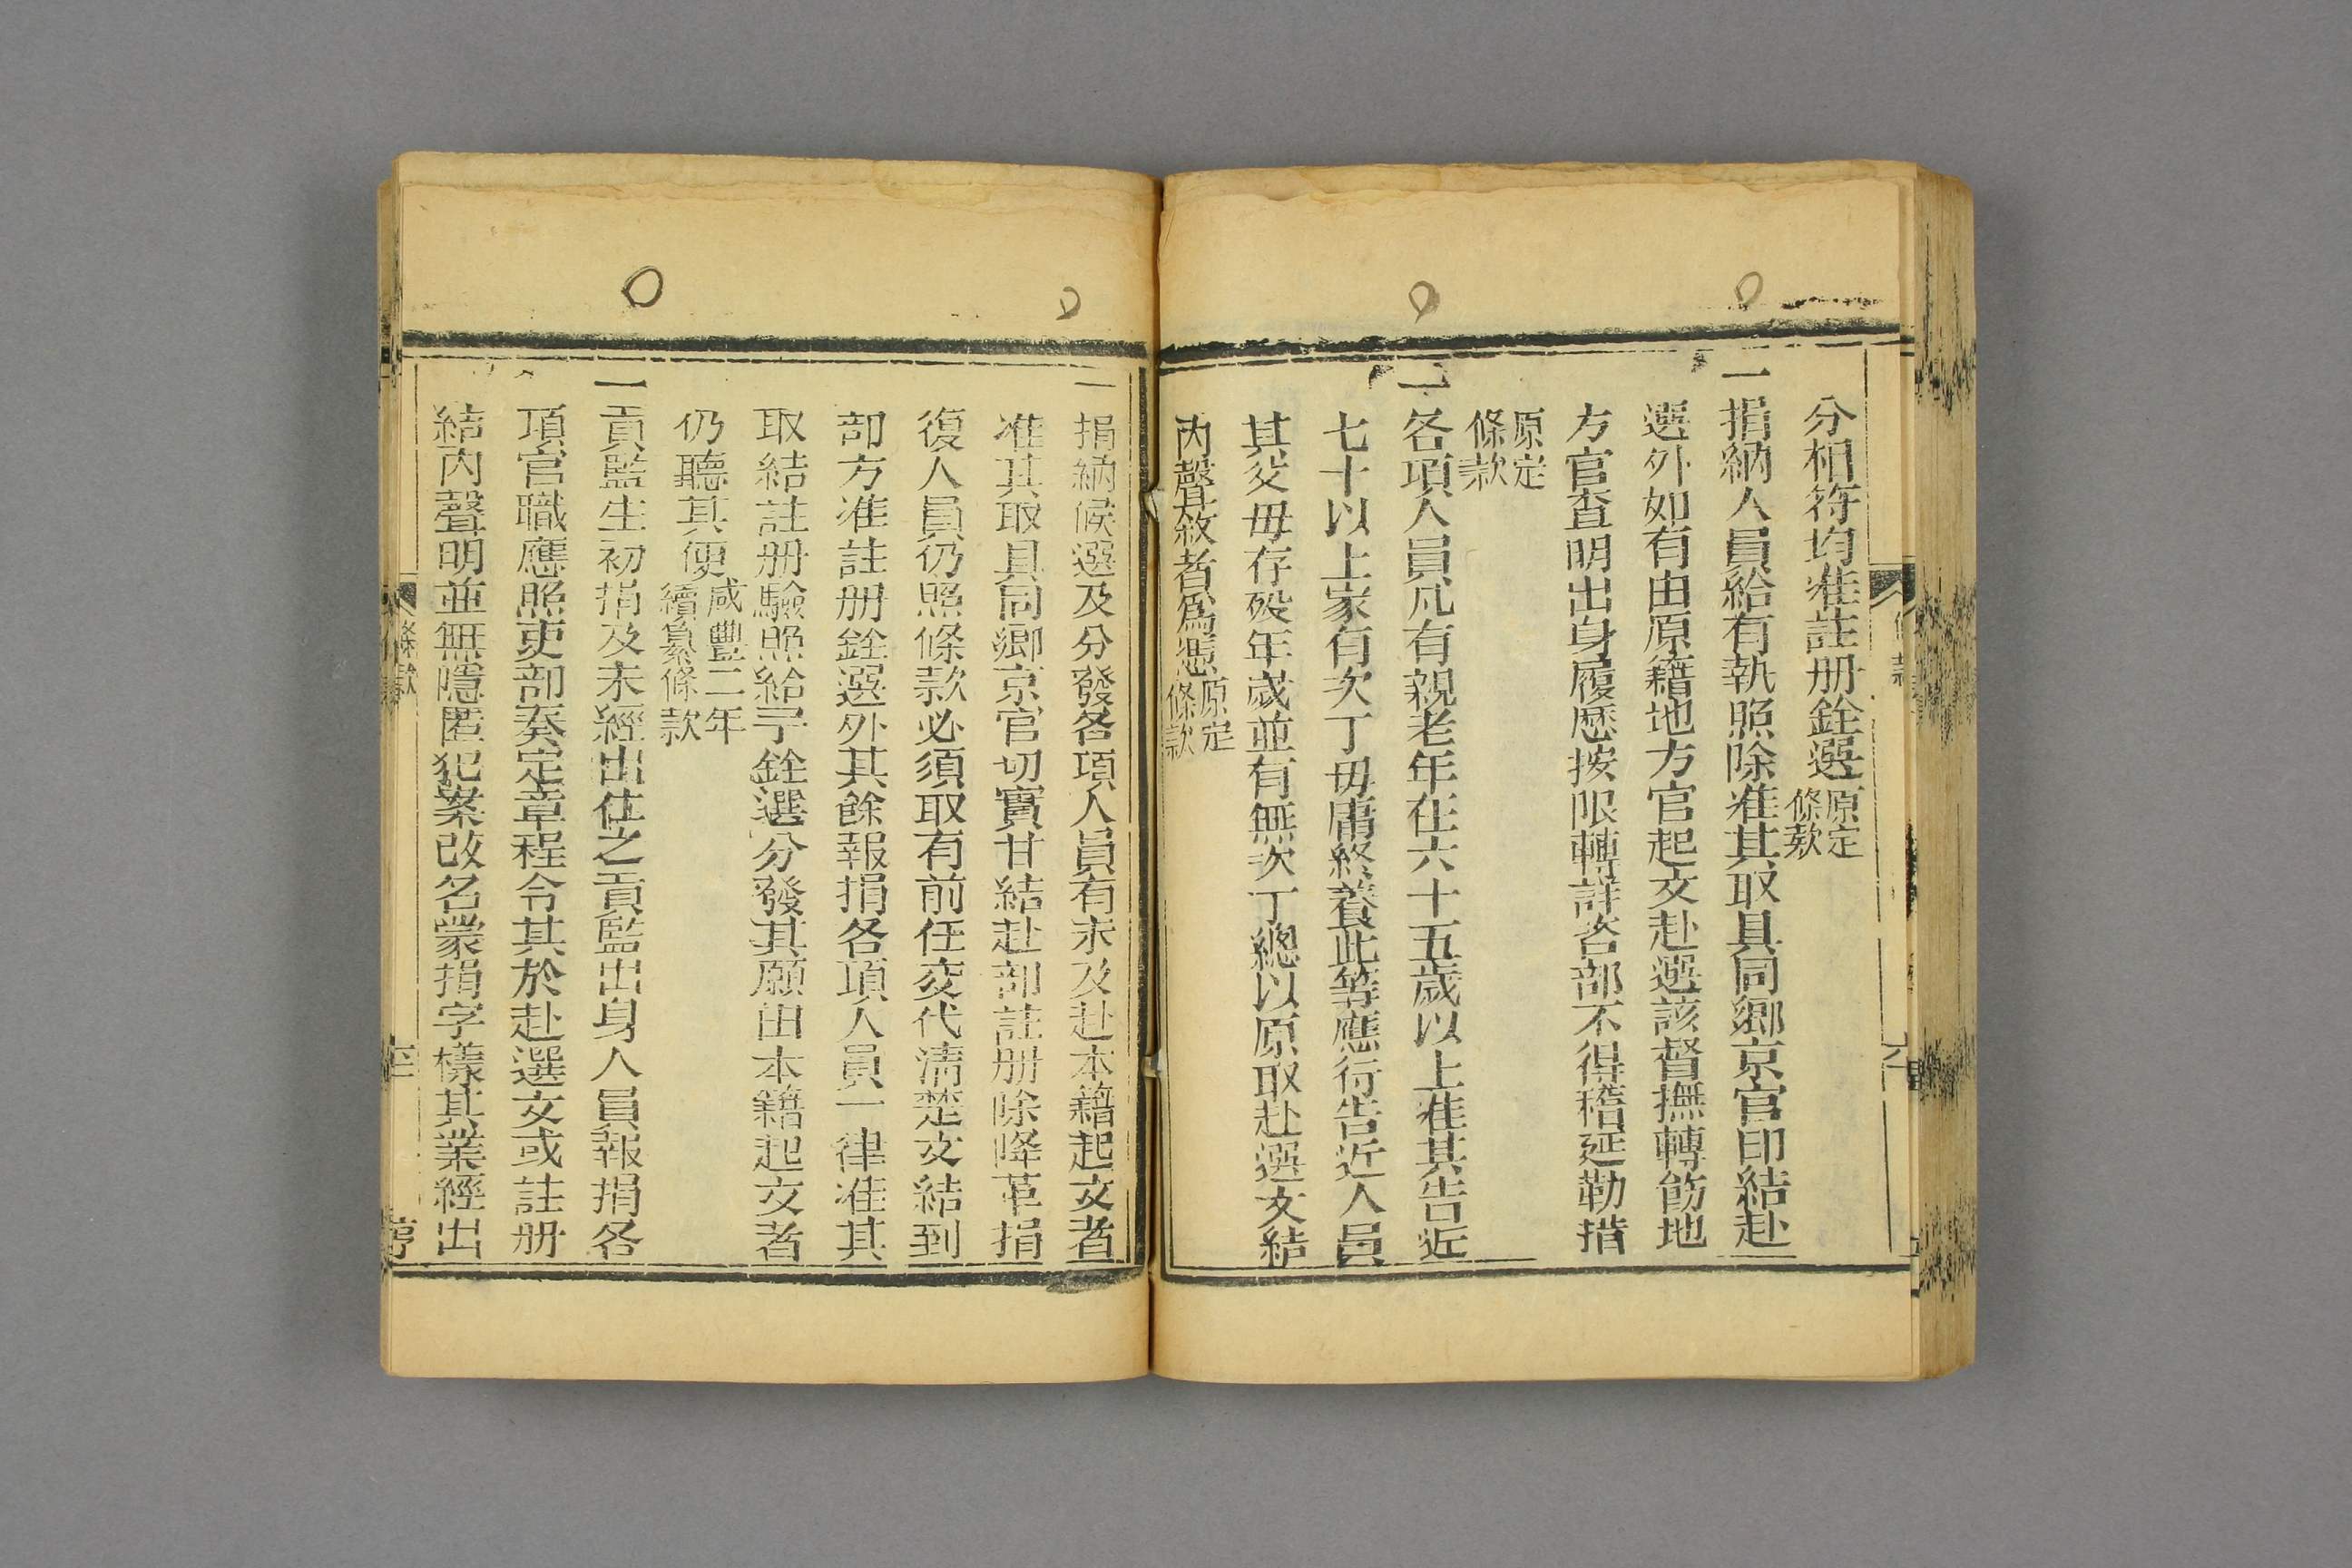 分相符均准註册銓選原定條款
一捐納人員給有執照除准其取具同鄉京官印結赴
選外如有由原籍地方官起文赴選該督撫轉飭地
方官查明出身履歷按限轉詳咨部不得稽延勒措
原定條款
一各項人員凡有親老年在六十五歲以上准其告近
七十以上家有次丁毋庸終養此等應行告近人員
其父毋存殁年歲並有無次丁總以原取赴選文結
內聲敘者為憑原定條款
一捐納候選及分發各項人員有未及赴本籍起文者
准其取具同鄉京官切實甘結赴部註册除降革捐
復人員仍照條款必須取有前任交代清楚文結到
部方准註册銓選外其餘報捐各項人員一律准其
取結註册驗照給予銓選分發其願由本籍起文者
仍聽其便咸豐二年續纂條款
一貢監生初捐及未經出仕之貢監出身人員報捐各
項官職應照吏部奏定章程令其於赴選文或註册
結內聲明並無隱匿犯案改名蒙捐字樣其業經出
條款